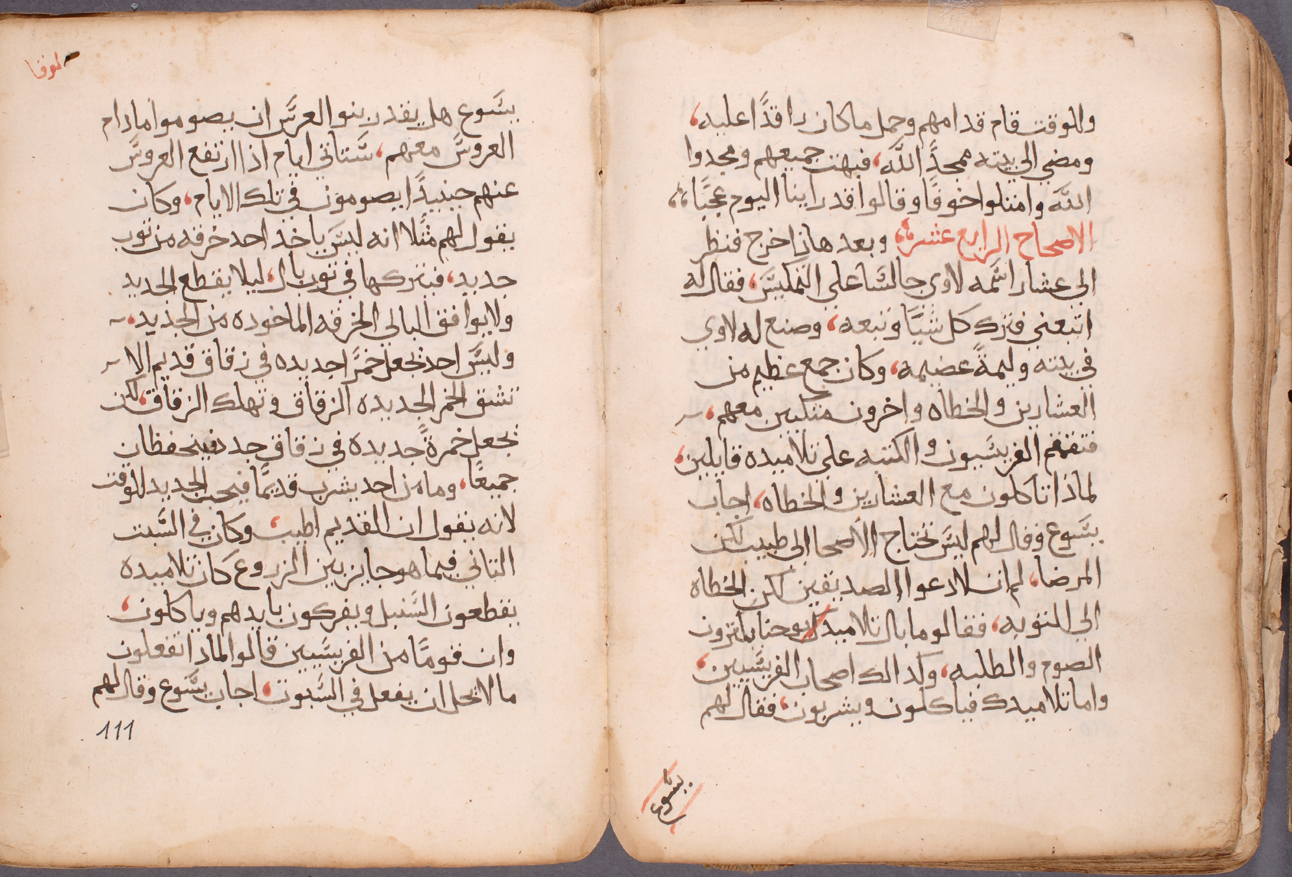 وللوقت قام قدامهم وحمل ماكان راقدًا عليه،
ومضي الي بيته ممجدًا الله، فبهت جميعهم ومجدوا
الله وامتلوا خوفًا وقالوا قد راينا اليوم عجبًا،
الاصحاح الرابع عشر، وبعد هاذا خرج فنظر
الي عشار اسمه لاوي جالسًا علي المكيس، فقال له
اتبعني فترك كل شيًا وتبعه، وصنع له لاوي
في بيته وليمةً عضيمه، وكان جمع عظيم من
العشارين والخطاه واخرون متكيين معهم،
فتقمقم الفريسيون والكتبه علي تلاميده قايلين،
لماذا تاكلون مع العشارين والخطاه، اجاب
يسوع وقال لهم ليس تحتاج الاصحا الي طبيب لكن
المرضا، لم ات لادعوا الصديقين لكن الخطاه
الي التوبه، فقالو ما بال تلاميد يوحنا يكترون
الصوم والطلبه، وكدالك اصحاب الفريسيين،
واما تلاميدك فياكلون ويشربون، فقال لهم
يسوع
لوقا
يسوع هل يقدر بنوا العرس ان يصوموا مادام
العروس معهم، ستاتي ايام اذا ارتفع العروس
عنهم حينيدًا يصومون في تلك الايام، وكان
يقول لهم مثلًا انه ليس ياخد احد خرقه من توب
جديد، فيتركها في توب بال، ليلا يقطع الجديد
ولا يوافق البالي الخرقه الماخوده من الجديد،
وليس احد يجعل خمرًا جديده في زقاق قديم الا
تشق الخمر الجديده الزقاق وتهلك الزقاق، لكن
يجعل خمرةً جديده في زقاق جدد فيتحفظان
جميعًا، وما من احد يشرب قديمًا فيحب الجديد للوقت
لانه يقول ان القديم اطيب، وكان في السبت
التاني فيما هو جايز بين الزروع كان تلاميده
يقطعون السنبل ويفركون بايدهم وياكلون،
وان قومًا من الفريسيين قالوا لماذا تفعلون
ما لا يحل ان يفعل في السبوت، اجاب يسوع وقال لهم
111